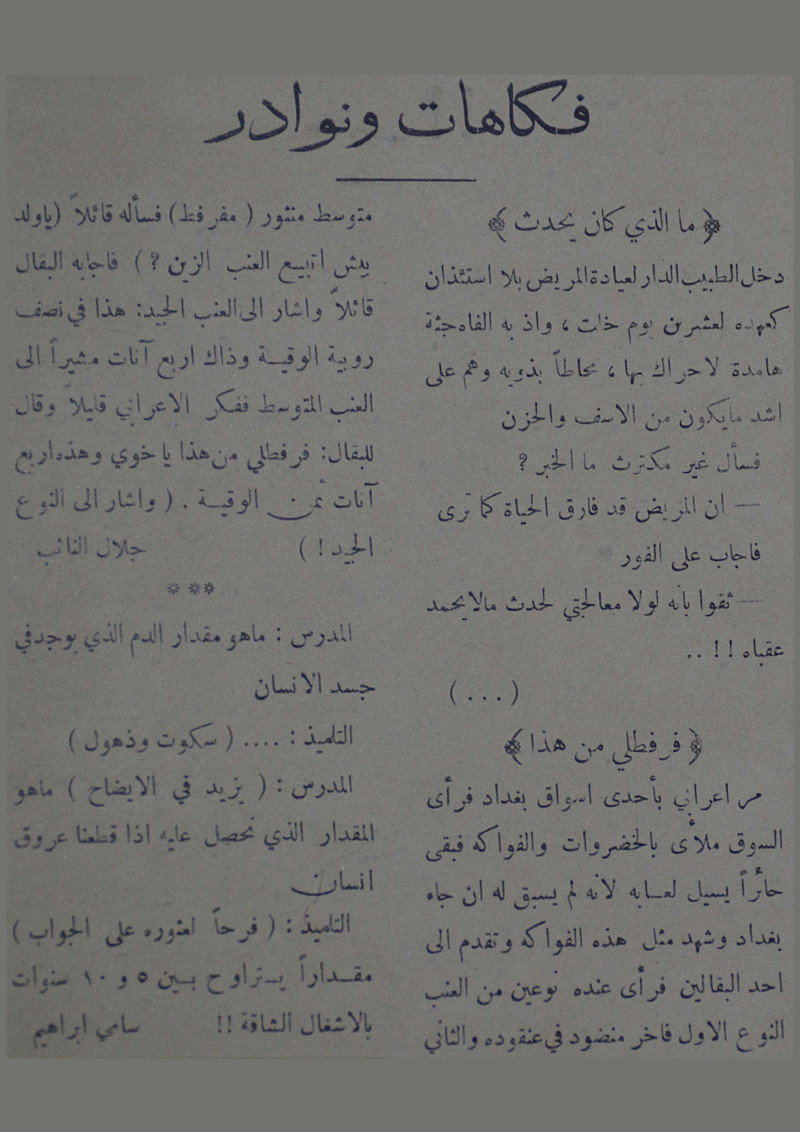 فكاهات ونوادر
﴿ ما الذي كان يحدث ﴾
دخل الطبيب الدار لعيادة المريض بلا استئذان
كعهده لعشرين يوم خلت ، واذ به الفاه جثة
هامدة لاحراك بها ، محاطاً بذويه وهم على
اشد مايكون من الاسف والحزن
فسأل غير مكترث ما الخبر ?
— ان المريض قد فارق الحياة كما ترى
فاجاب على الفور
— ثقوا بانه لولا معالجتي لحدث مالايحمد
عقباه !! ..
( ... )
﴿ فرفطلي من هذا ﴾
مر اعرابي بأحدى اسواق بغداد فرأى
السوق ملأى بالخضروات والفواكه فبقى
حائراً يسيل لعابه لانه لم يسبق له ان جاء
بغداد وشهد مثل هذه الفواكه وتقدم الى
احد البقالين فرأى عنده نوعين من العنب
النوع الاول فاخر منضود في عنقوده والثاني
متوسط منثور ( مفرفط) فسأله قائلاً (ياولد
بيش اتبيع العنب الزين ? ) فاجابه البقال
قائلاً واشار الى العنب الجيد: هذا في نصف
روبية الوقية وذاك اربع آنات مشيراً الى
العنب المتوسط ففكر الاعرابي قليلاً وقال
للبقال: فرفطلي من هذا ياخوي وهذه اربع
آنات ثمن الوقية . ( واشار الى النوع
الجيد ! ) جلال النائب
***
المدرس : ماهو مقدار الدم الذي يوجد في
جسد الانسان
التلميذ : .... ( سكوت وذهول )
المدرس : ( يزيد في الايضاح ) ماهو
المقدار الذي نحصل عليه اذا قطعنا عروق
انسان
التلميذ : ( فرحاً لعثوره على الجواب )
مقداراً يتراوح بين ٥ و ١٠ سنوات
بالاشغال الشاقة !! سامي ابراهيم